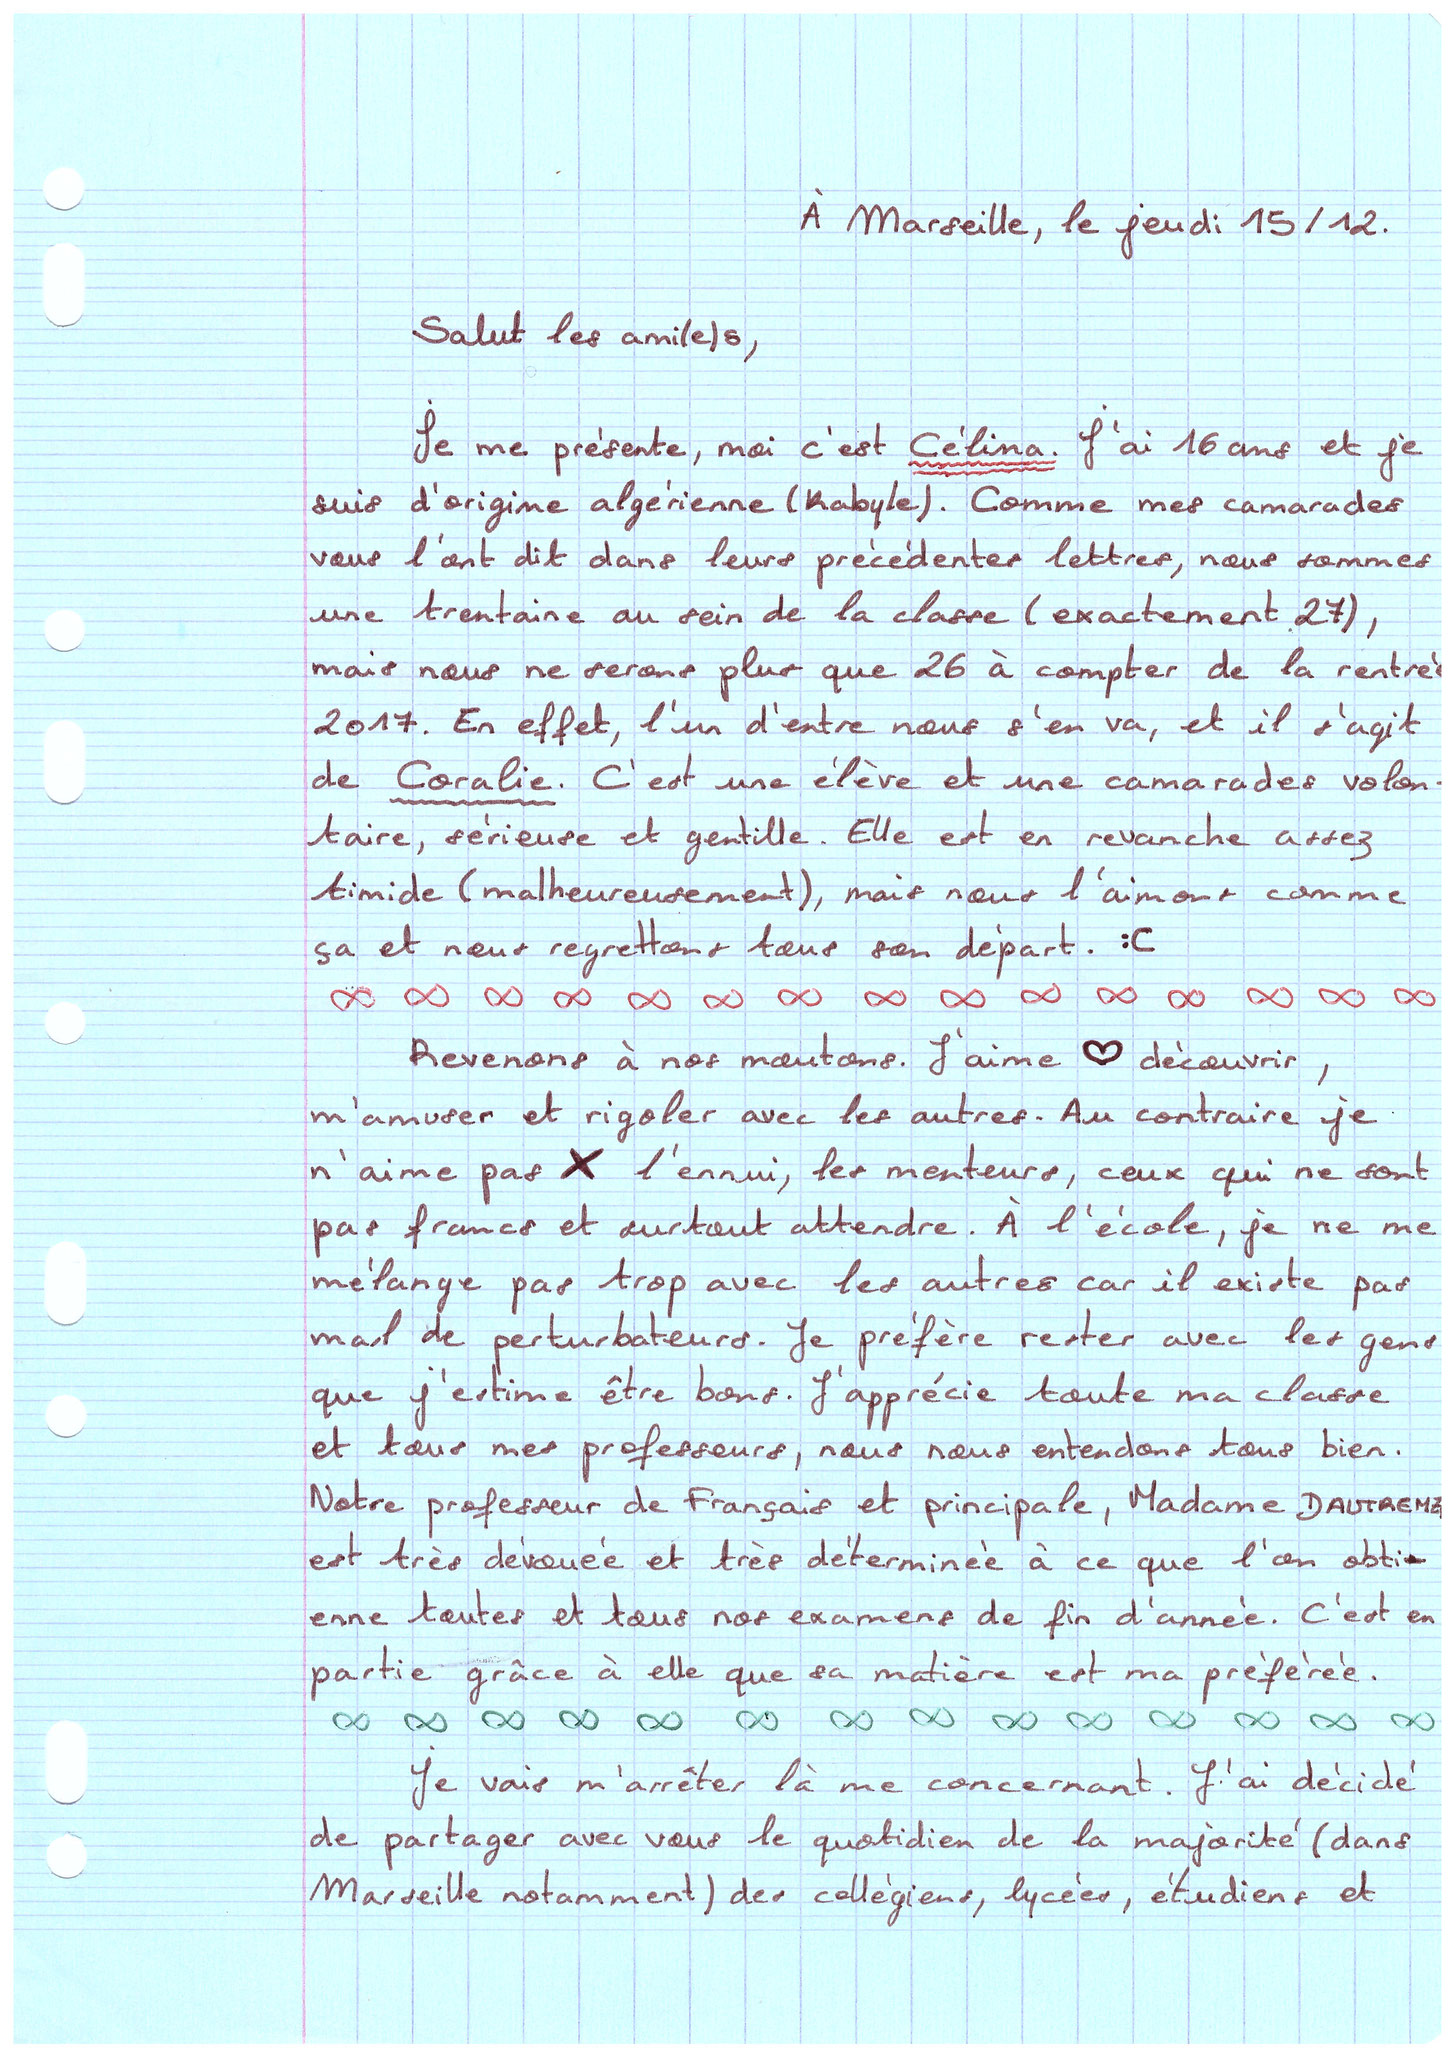 À Marseille, le jeudi 15/12.
Salut les ami(e)s,
Je me présente, moi c'est Célina. J'ai 16 ans et je
suis d'origine algérienne (Kabyle). Comme mes camarades
vous l'ont dit dans leurs précédentes lettres, nous sommes
une trentaine au sein de la classe (exactement 27),
mais nous ne serons plus que 26 à compter de la rentrée
2017. En effet, l'un d'entre nous s'en va, et il s'agit
de Coralie. C'est une élève et une camarades volon-
taire, sérieuse et gentille. Elle est en revanche assez
timide (malheureusement), mais nous l'aimons comme
ça et nous regrettons tous son départ. :C
∞ ∞ ∞ ∞ ∞ ∞ ∞ ∞ ∞ ∞ ∞ ∞ ∞ ∞ ∞
Revenons à nos moutons. J'aime ♡ découvrir,
m'amuser et rigoler avec les autres. Au contraire je
n'aime pas X l'ennui, les menteurs, ceux qui ne sont
pas francs et surtout attendre. À l'école, je ne me
mélange pas trop avec les autres car il existe pas
mal de perturbateurs. Je préfère rester avec les gens
que j'estime être bons. J'apprécie toute ma classe
et tous mes professeurs, nous nous entendons tous bien.
Notre professeur de Français et principale, Madame DAUTREME
est très dévouée et très déterminée à ce que l'on obti-
enne toutes et tous nos examens de fin d'année. C'est en
partie grâce à elle que sa matière est ma préférée.
∞ ∞ ∞ ∞ ∞ ∞ ∞ ∞ ∞ ∞ ∞ ∞ ∞ ∞
Je vais m'arrêter là me concernant. J'ai décidé
de partager avec vous le quotidien de la majorité (dans
Marseille notamment) des collégiens, lycées, étudiens et